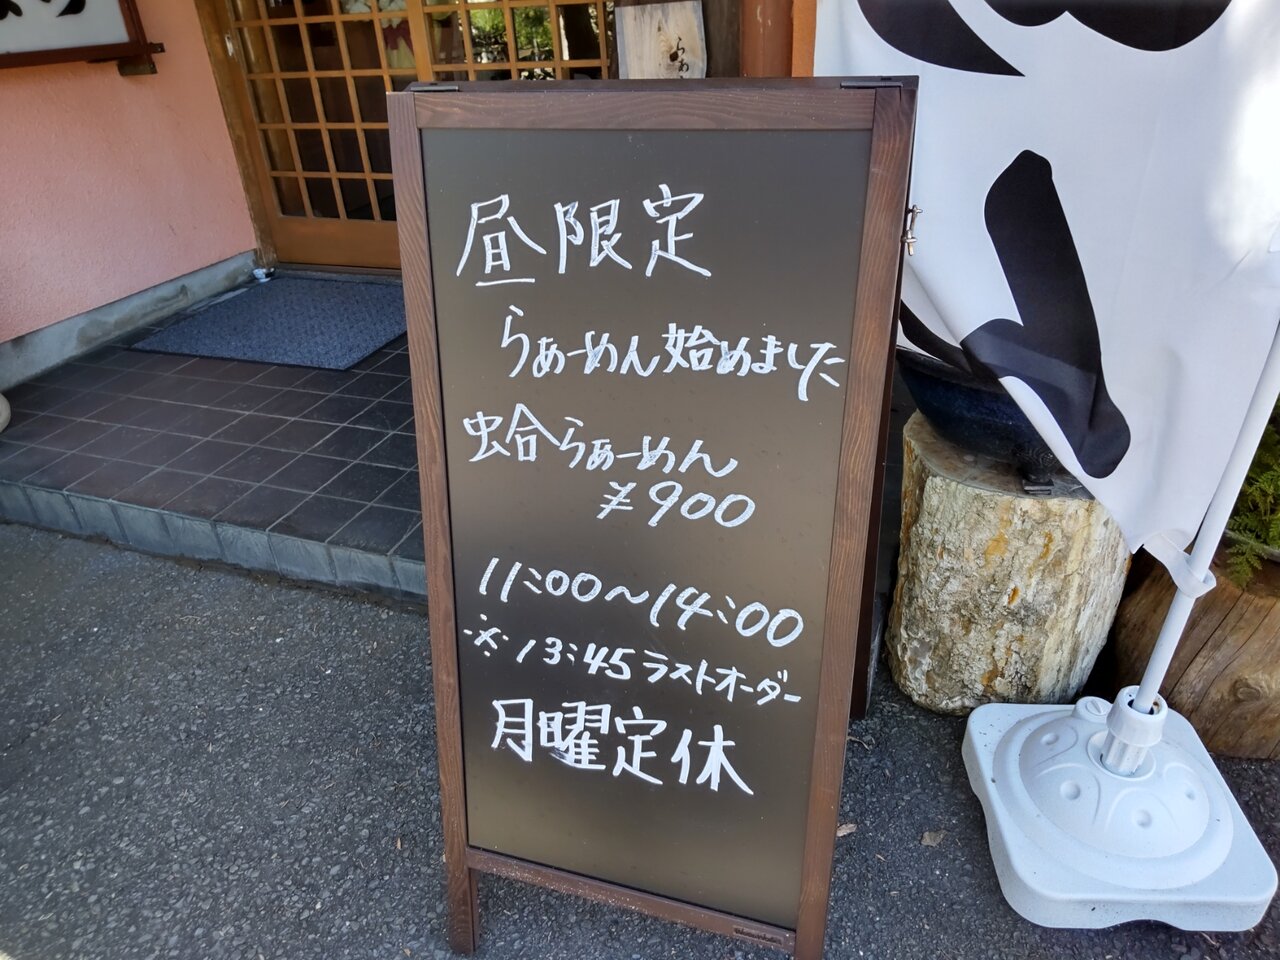 らぁ
昼限定
らぁーめん始めました
蛤らぁーめん
¥900
11:00〜14:00
※13:45ラストオーダー
月曜定休